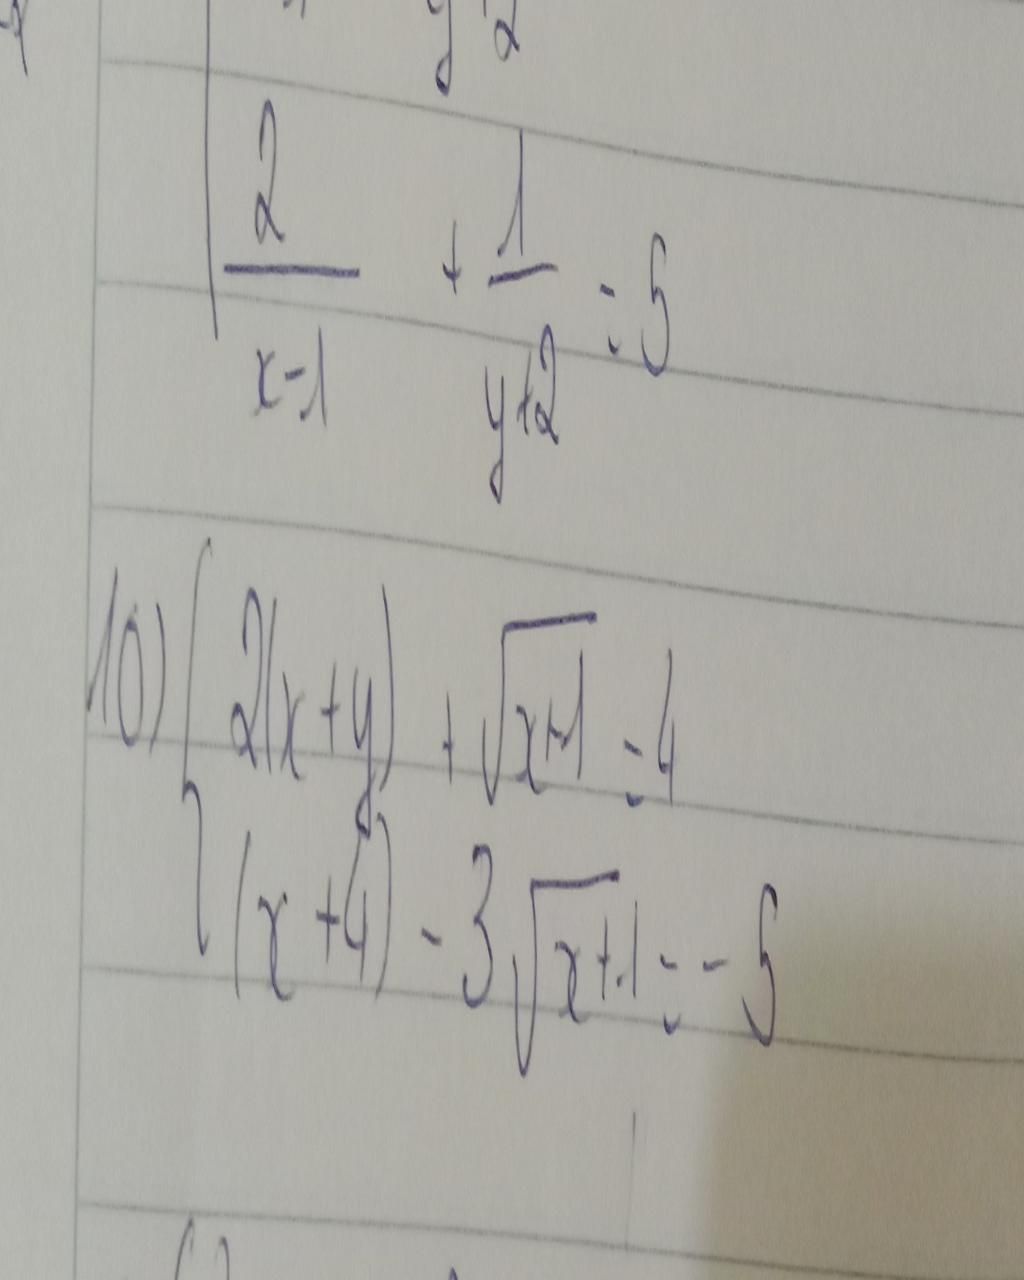 y 2
2/(x-1) + 1/(y+2) = 5
10) { 2(x+y) + √(x+1) = 4
(x+4) - 3√(x+1) = -5